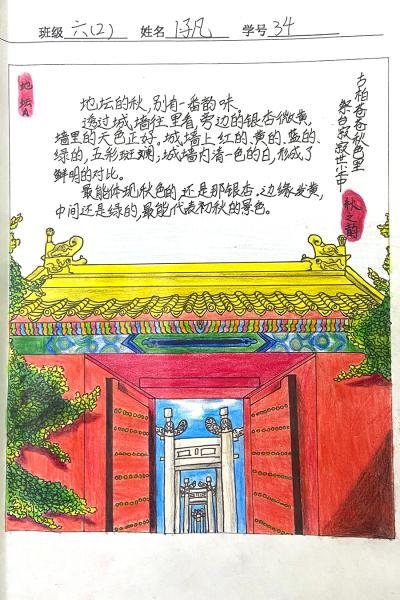 班级 六(2) 姓名 学号 34
地坛的秋,别有一番韵味。
透过城墙往里看,旁边的银杏微黄,
墙里的天色正好。城墙上红的、黄的、蓝的、
绿的,五彩斑斓,城墙内清一色的白,形成了
鲜明的对比。
最能体现秋色的,还是那银杏,边缘发黄,
中间还是绿的,最能代表初秋的景色。
古柏苍苍秋色里
祭台寂寂世带中
秋之韵
地坛